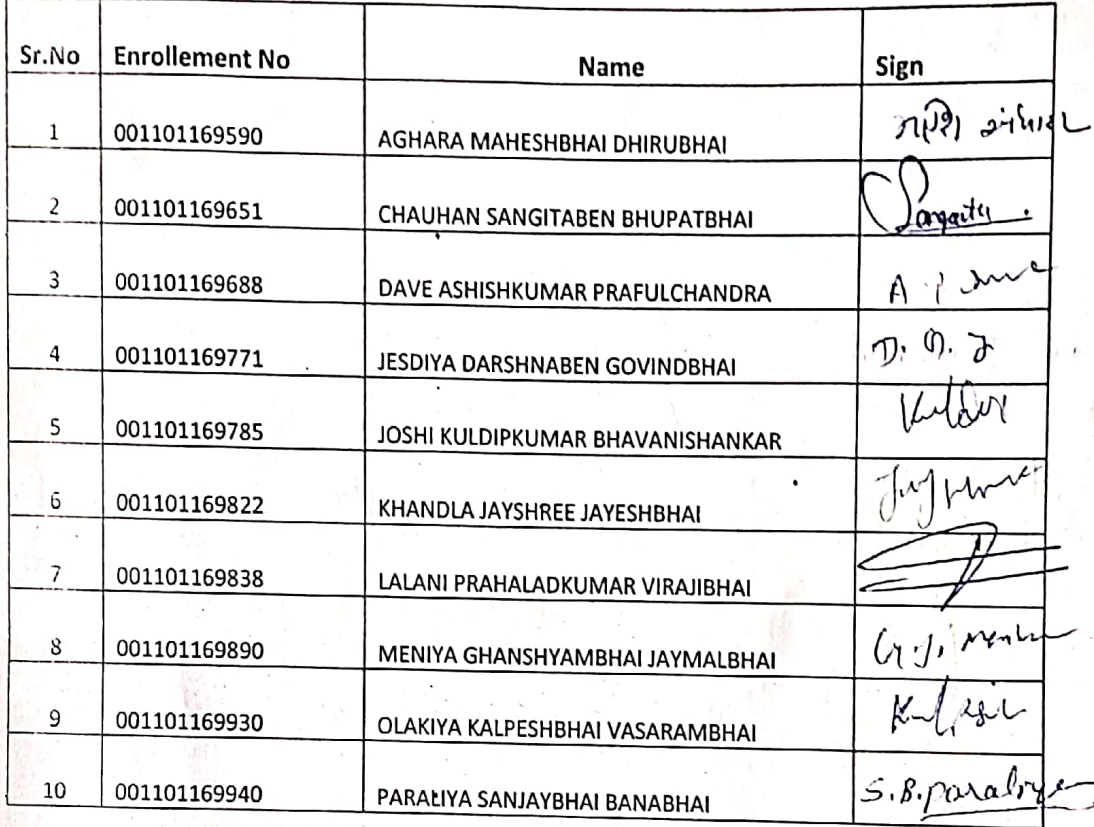 Sr.No Enrollement No Name Sign
1 001101169590 AGHARA MAHESHBHAI DHIRUBHAI
2 001101169651 CHAUHAN SANGITABEN BHUPATBHAI Sangita
3 001101169688 DAVE ASHISHKUMAR PRAFULCHANDRA A
4 001101169771 JESDIYA DARSHNABEN GOVINDBHAI D. G. J
5 001101169785 JOSHI KULDIPKUMAR BHAVANISHANKAR
6 001101169822 KHANDLA JAYSHREE JAYESHBHAI
7 001101169838 LALANI PRAHALADKUMAR VIRAJIBHAI
8 001101169890 MENIYA GHANSHYAMBHAI JAYMALBHAI G.J.
9 001101169930 OLAKIYA KALPESHBHAI VASARAMBHAI
10 001101169940 PARALIYA SANJAYBHAI BANABHAI S.B.paraliya